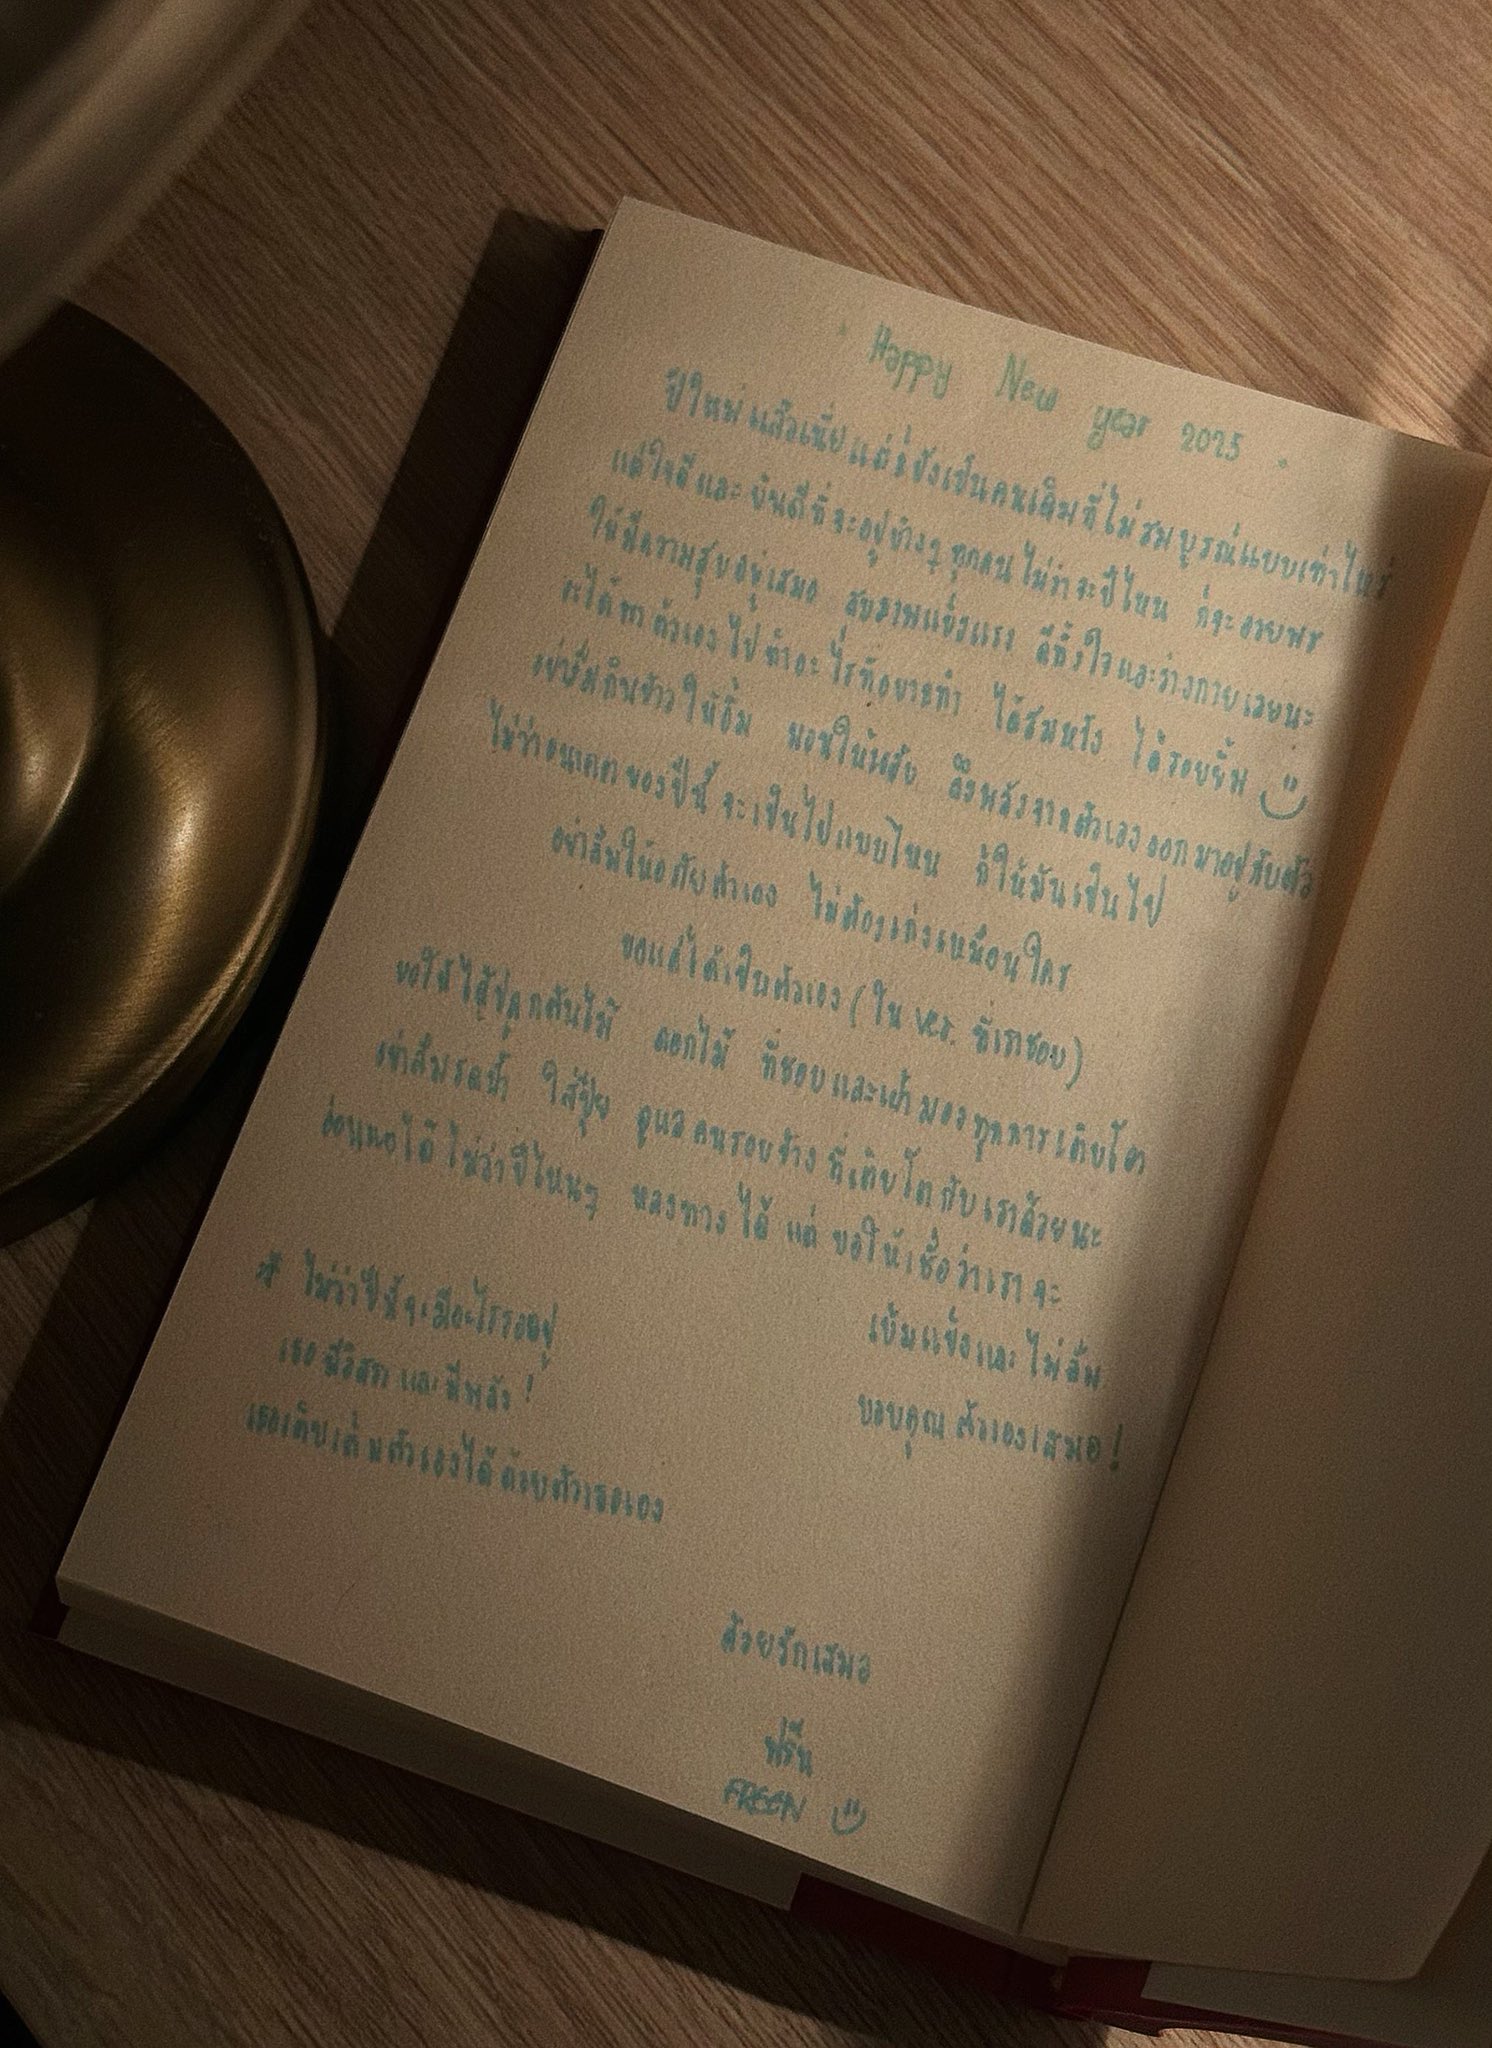 Happy New year 2025
ปีใหม่แล้วเนี่ย แต่ก็ยังเป็นคนเดิมที่ไม่สมบูรณ์แบบเท่าไหร่
แต่ใจดี และ ยินดีที่จะอยู่ข้างๆ ทุกคน ไม่ว่าจะปีไหน ก็จะอวยพร
ให้มีความสุขอยู่เสมอ สุขภาพแข็งแรง ดีทั้งใจและร่างกายเลยนะ
จะได้พาตัวเองไปทำอะไรที่อยากทำ ได้สมหวัง ได้รอยยิ้ม
อย่าลืมกินข้าวให้อิ่ม นอนให้หลับ ดึงพลังจากตัวเองออกมาอยู่กับตัว
ไม่ว่าอนาคตของปีนี้ จะเป็นไปแบบไหน ก็ให้มันเป็นไป
อย่าลืมให้อภัยตัวเอง ไม่ต้องเก่งเหมือนใคร
ขอแค่ได้เป็นตัวเอง (ใน ver. ที่เราชอบ)
ขอให้ได้ปลูกต้นไม้ ดอกไม้ ที่ชอบและเฝ้ามองทุกการเติบโต
อย่าลืมรดน้ำ ใส่ปุ๋ย ดูแลคนรอบข้าง ที่เติบโตกับเราด้วยนะ
อ่อนแอได้ ไม่ว่าปีไหนๆ หลงทางได้ แต่ ขอให้เชื่อว่าเราจะ
เข้มแข็งและไม่ลืม
ขอบคุณตัวเองเสมอ!
* ไม่ว่าปีนี้จะมีอะไรรออยู่
เธอมีอิสระ และมีพลัง!
เธอเติมเต็มตัวเองได้ด้วยตัวเธอเอง
ด้วยรักเสมอ
ฟรีน
FREEN